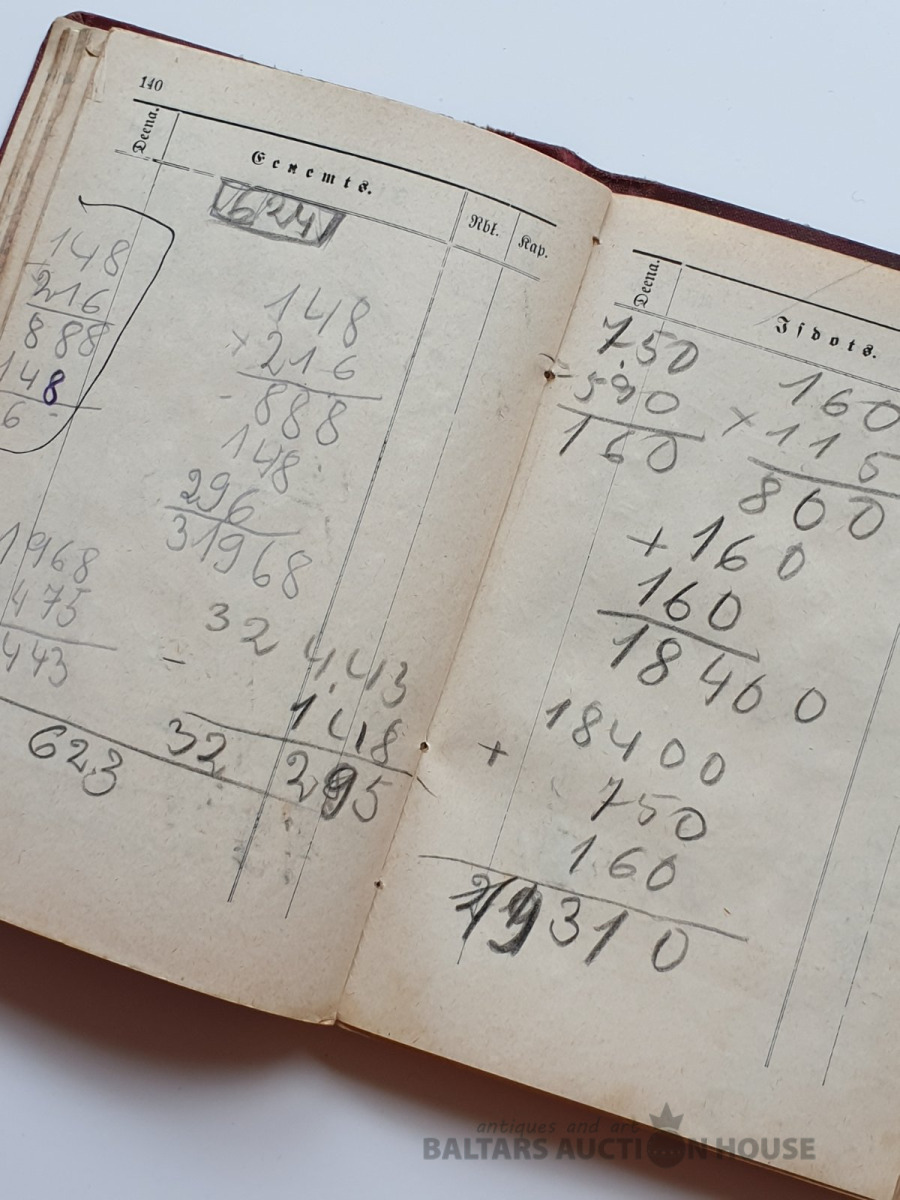 140
Deena.
Eenemts.
Rbl.
Kap.
624
148
216
888
148
6
148
× 216
- 888
148
296
31968
1968
475
443
32 443
-
148
32 295
623
Deena.
Isdots.
750
- 590
160
160
× 115
800
+ 160
160
18400
18400
+ 750
160
19310
antiques and art
BALTARS AUCTION HOUSE